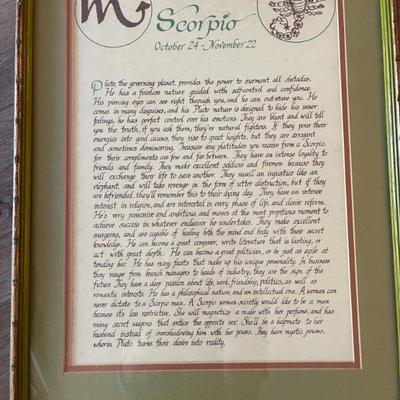 Scorpio
October 24 - November 22
Pluto, the governing planet, provides the power to surmont all obstacles.
He has a fearless nature guided with self-control and confidence.
His piercing eyes can see right through you, and he can out-stare you. He
comes in many disguises, and his Pluto nature is designed to hide his inner
feelings; he has perfect control over his emotions. They are blunt and will tell
you the truth, if you ask them; they're natural fighters. If they pour their
energies into good causes, they rise to great heights, but they are arrogant
and sometimes domineering. Treasure any platitudes you receive from a Scorpio,
for their compliments are few and far between. They have an intense loyalty to
friends and family. They make excellent soldiers and firemen because they
will exchange their life to save another. They recall an injustice like an
elephant, and will take revenge in the form of utter destruction, but if they
are befriended, they'll remember this to their dying day. They have an intense
interest in religion, and are interested in every phase of life, and desire reforms.
He's very possessive and ambitious, and moves at the most propitious moment to
achieve success in whatever endeavor he undertakes. They make excellent
surgeons, and are capable of healing both the mind and body with their secret
knowledge. He can become a great composer, write literature that is lasting, or
act with great depth. He can become a great politician, or be just as agile at
tending bar. He has many facets that make up his unique personality. In business
they range from branch managers to heads of industry; they are the sign of the
future. They have a deep passion about life, work, friendship, politics, as well as
romantic interests. He has a philosophical nature, and an intellectual one. A woman can
never dictate to a Scorpio man. A Scorpio woman secretly would like to be a man
because its less restrictive. She will magnetize a male with her perfume, and has
many secret weapons that entice the opposite sex. She'll be a helpmate to her
husband instead of overshadowing him with her powers. They have mystic powers,
wherin Pluto turns their desires into reality.